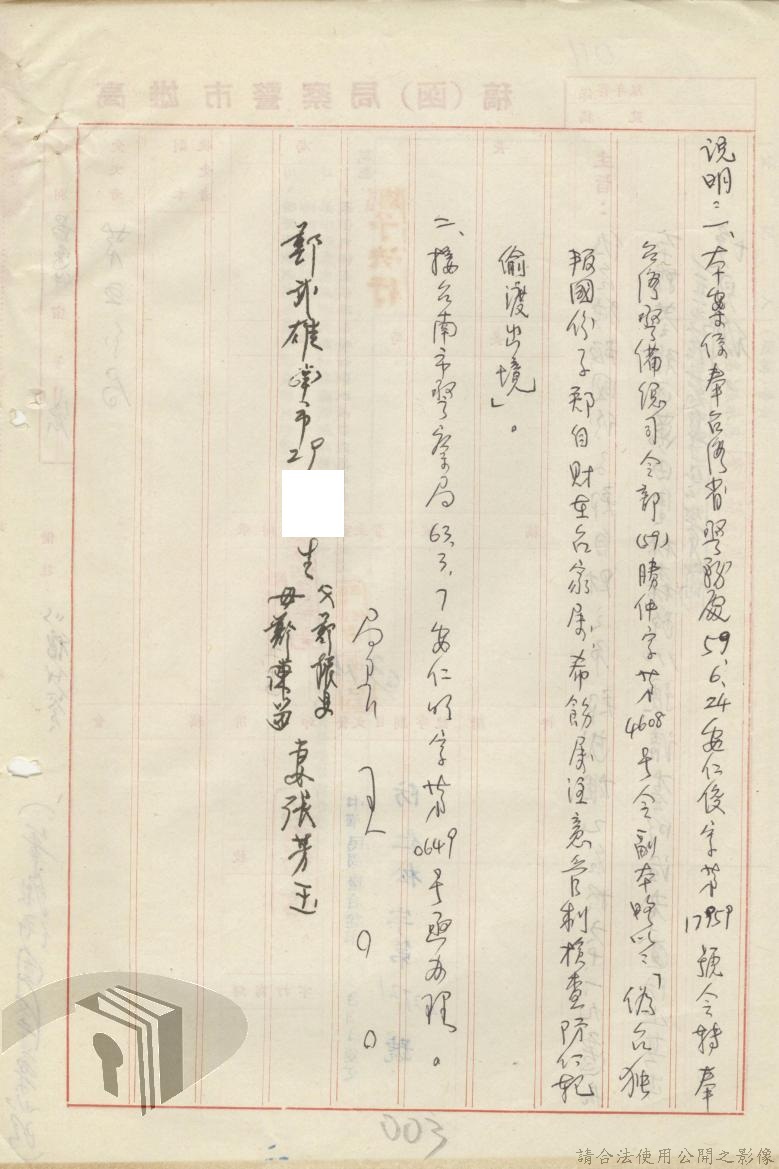 説明：一、本案係奉台湾省警務處59.6.24安仁俊字第17959號令轉奉
台湾警備總司令部(59)勝仲字第4608号令副本略以：「偽台独
叛國份子鄭自財在台家属，希飭属注意管制檢查防仁犯
偷渡出境」。
二、接台南市警察局63.3.7安仁明字第0649号函办理。
局長 王〇〇
鄭武雄 南市 29 生 父鄭振 母鄭陳 妻張芳玉
003
請合法使用公開之影像